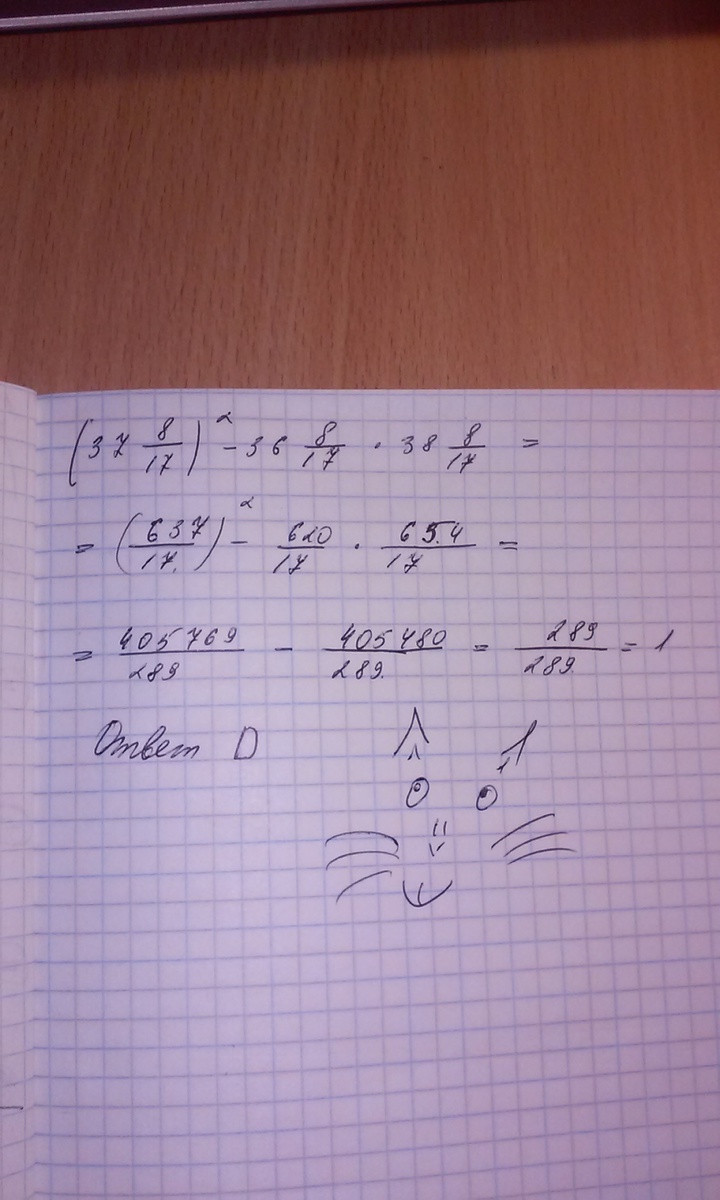 (37 8/17)² - 36 8/17 · 38 8/17 =
= (637/17)² - 620/17 · 654/17 =
= 405769/289 - 405480/289 = 289/289 = 1
Ответ D